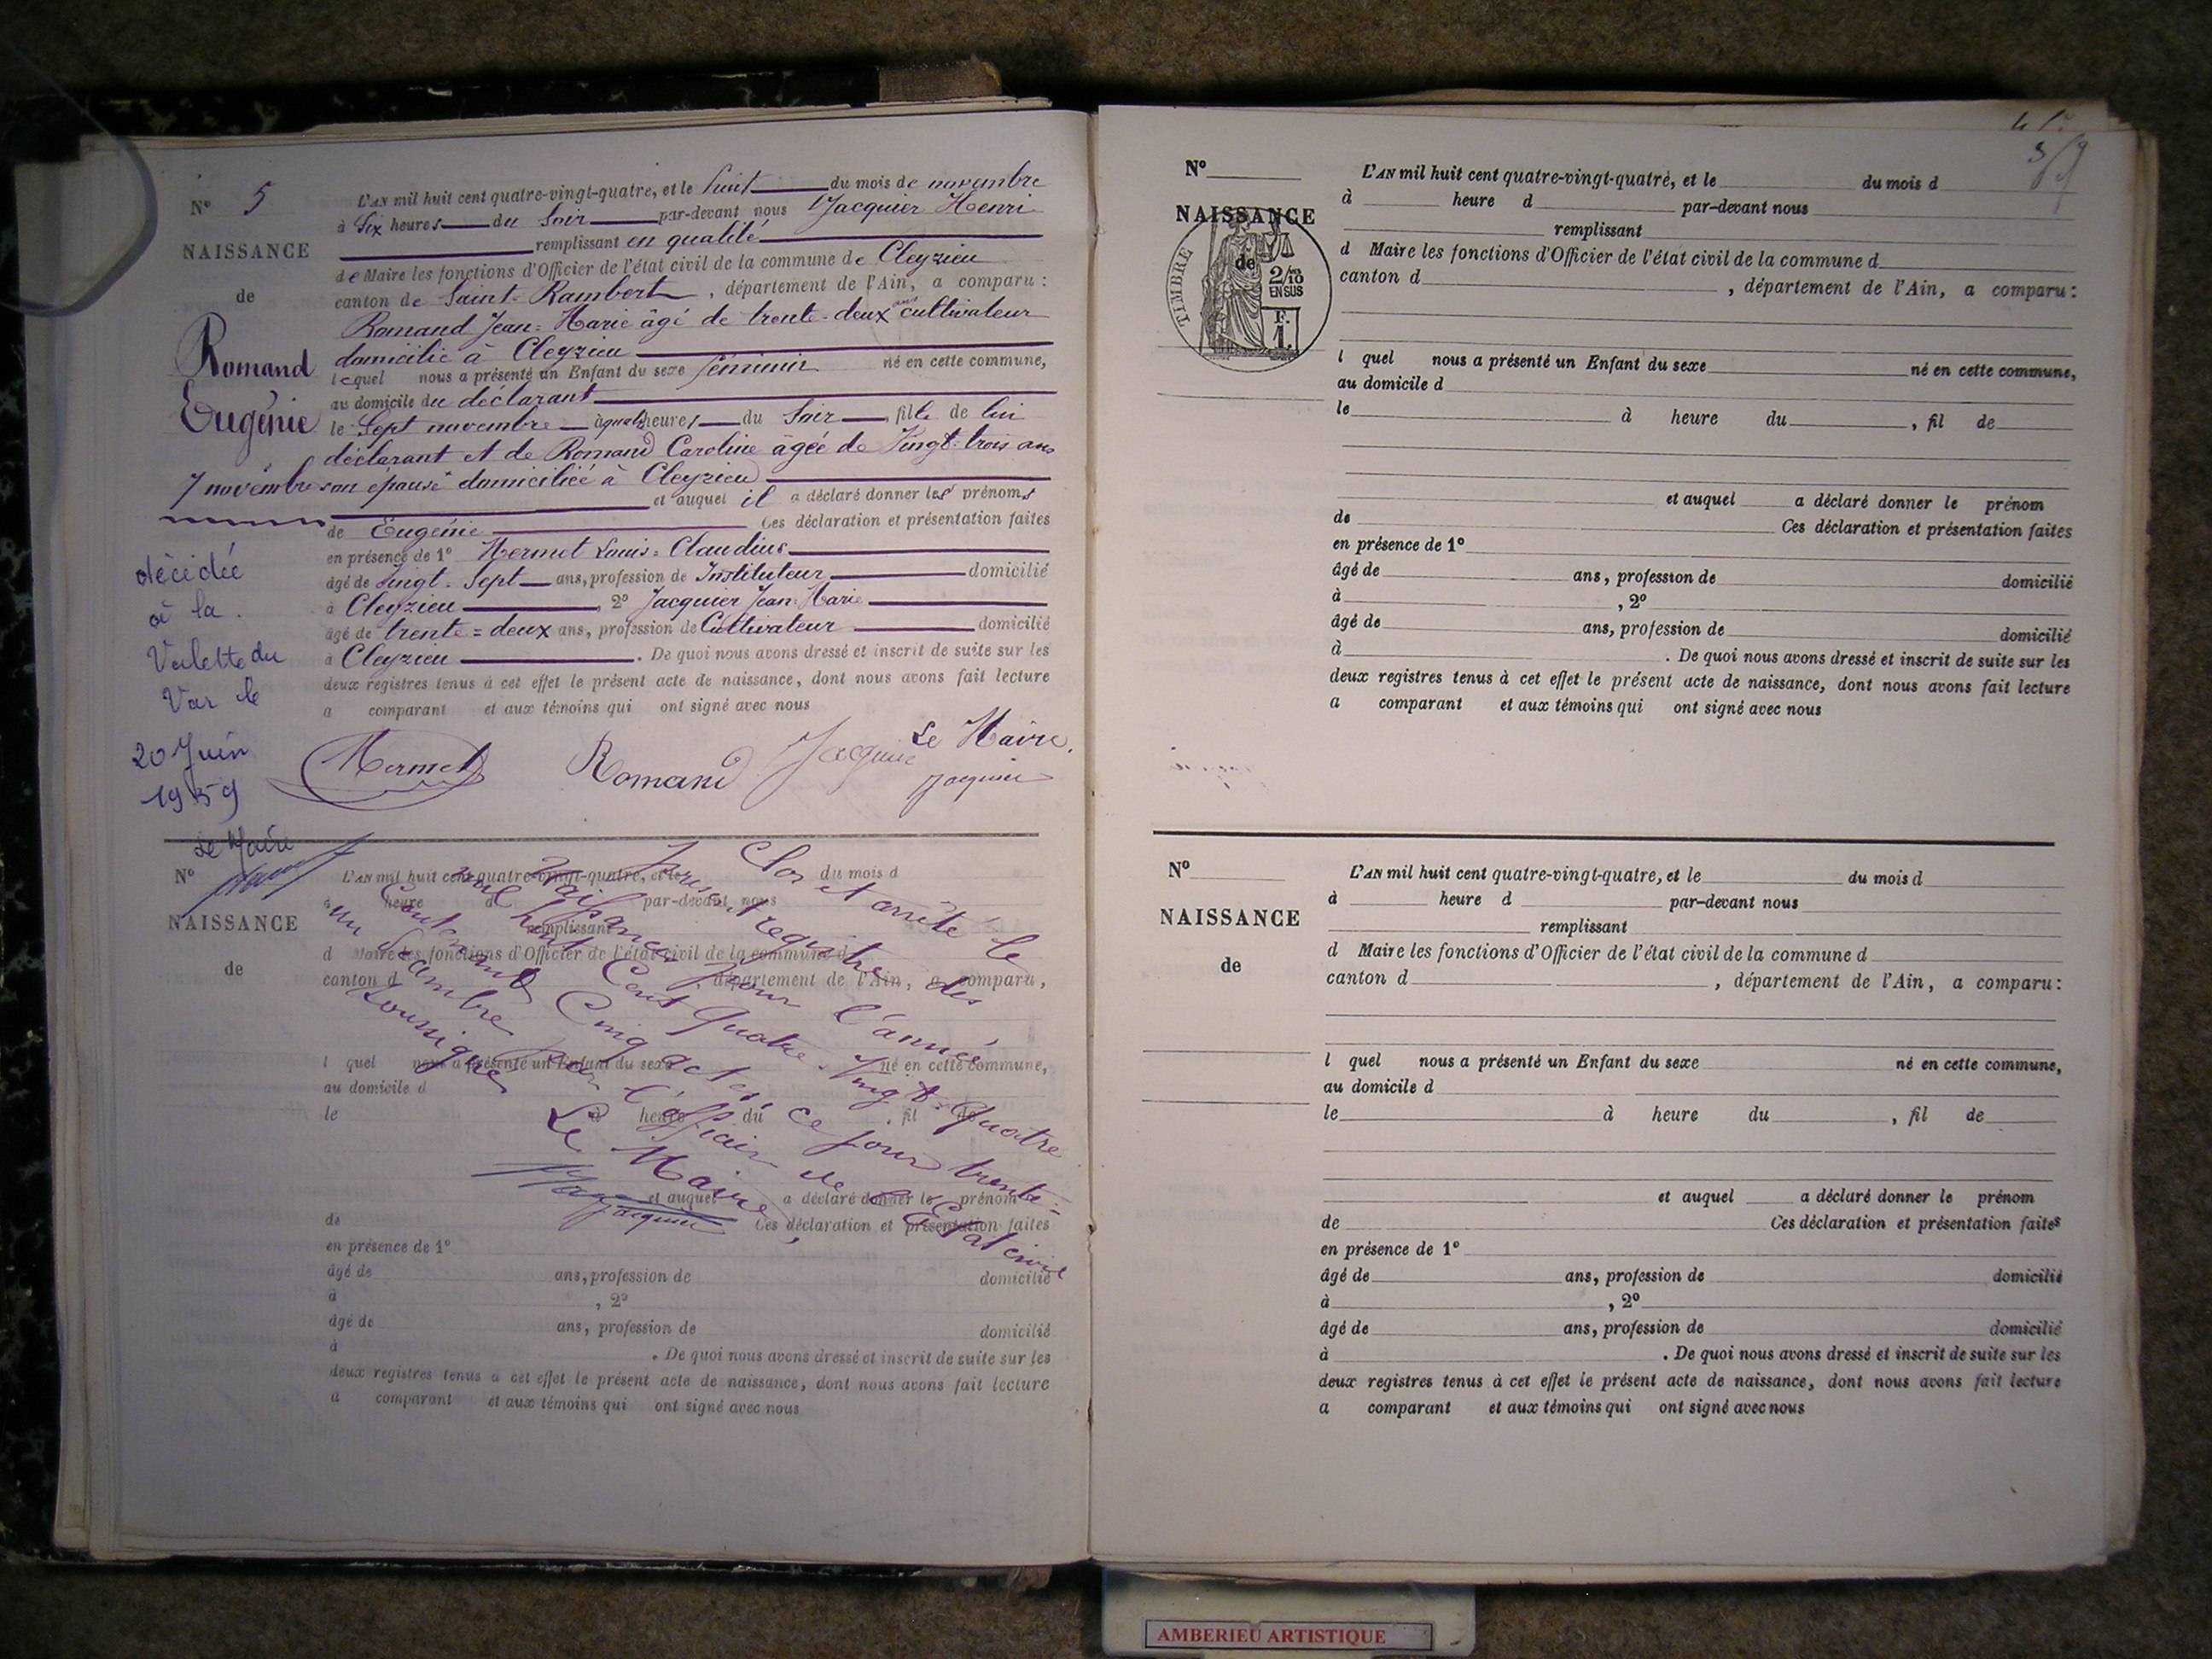 N° 5
NAISSANCE
de
Romand
Eugénie
7 novembre
décédée
à la
Valette du
Var le
20 Juin
1959
Le Maire
L'AN mil huit cent quatre-vingt-quatre, et le huit du mois de novembre
à Six heures du Soir par-devant nous Jacquier Henri
remplissant en qualité
de Maire les fonctions d'Officier de l'état civil de la commune de Cleyzieu
canton de Saint-Rambert, département de l'Ain, a comparu :
Romand Jean=Marie âgé de trente-deux ans cultivateur
domicilié à Cleyzieu
lequel nous a présenté un Enfant du sexe féminin né en cette commune,
au domicile du déclarant
le Sept novembre à quatre heures du Soir, fille de lui
déclarant et de Romand Caroline âgée de Vingt-trois ans
son épouse domiciliée à Cleyzieu
et auquel il a déclaré donner les prénoms
de Eugénie Ces déclaration et présentation faites
en présence de 1° Mermet Louis=Claudius
âgé de Vingt-Sept ans, profession de Instituteur domicilié
à Cleyzieu, 2° Jacquier Jean-Marie
âgé de trente=deux ans, profession de Cultivateur domicilié
à Cleyzieu. De quoi nous avons dressé et inscrit de suite sur les
deux registres tenus à cet effet le présent acte de naissance, dont nous avons fait lecture
a comparant et aux témoins qui ont signé avec nous
Mermet Romand Jacquier Le Maire,
Jacquier
N°
NAISSANCE
de
L'AN mil huit cent quatre-vingt-quatre, et le du mois d
à heure d par-devant nous
remplissant
d Maire les fonctions d'Officier de l'état civil de la commune d
canton d département de l'Ain, a comparu,
l quel nous a présenté un Enfant du sexe né en cette commune,
au domicile d
le à heure du , fil de
et auquel a déclaré donner le prénom
de Ces déclaration et présentation faites
en présence de 1°
âgé de ans, profession de domicilié
à , 2°
âgé de ans, profession de domicilié
à . De quoi nous avons dressé et inscrit de suite sur les
deux registres tenus à cet effet le présent acte de naissance, dont nous avons fait lecture
a comparant et aux témoins qui ont signé avec nous
Clos et arrêté le
présent registre des
naissances pour l'année
mil huit Cent Quatre-Vingt-Quatre
Contenant Cinq actes ce jour trente=
un Décembre par l'officier de l'Etat civil
soussigné
Le Maire,
Jacquier
N°
NAISSANCE
de
TIMBRE
2/10
EN SUS
F.
1.
L'AN mil huit cent quatre-vingt-quatre, et le du mois d
à heure d par-devant nous
remplissant
d Maire les fonctions d'Officier de l'état civil de la commune d
canton d , département de l'Ain, a comparu :
l quel nous a présenté un Enfant du sexe né en cette commune,
au domicile d
le à heure du , fil de
et auquel a déclaré donner le prénom
de Ces déclaration et présentation faites
en présence de 1°
âgé de ans, profession de domicilié
à , 2°
âgé de ans, profession de domicilié
à . De quoi nous avons dressé et inscrit de suite sur les
deux registres tenus à cet effet le présent acte de naissance, dont nous avons fait lecture
a comparant et aux témoins qui ont signé avec nous
N°
NAISSANCE
de
L'AN mil huit cent quatre-vingt-quatre, et le du mois d
à heure d par-devant nous
remplissant
d Maire les fonctions d'Officier de l'état civil de la commune d
canton d , département de l'Ain, a comparu :
l quel nous a présenté un Enfant du sexe né en cette commune,
au domicile d
le à heure du , fil de
et auquel a déclaré donner le prénom
de Ces déclaration et présentation faites
en présence de 1°
âgé de ans, profession de domicilié
à , 2°
âgé de ans, profession de domicilié
à . De quoi nous avons dressé et inscrit de suite sur les
deux registres tenus à cet effet le présent acte de naissance, dont nous avons fait lecture
a comparant et aux témoins qui ont signé avec nous
AMBERIEU ARTISTIQUE